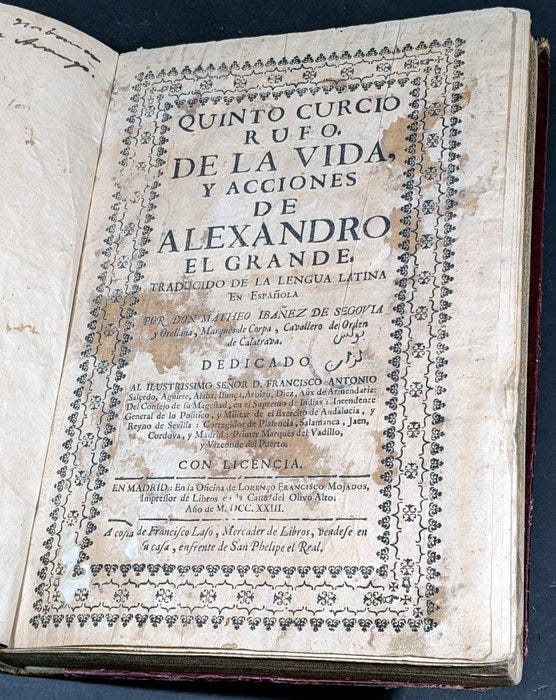 QUINTO CURCIO
RUFO.
DE LA VIDA,
Y ACCIONES
DE
ALEXANDRO
EL GRANDE.
TRADUCIDO DE LA LENGUA LATINA
EN ESPAÑOLA
POR DON MATHEO IBAÑEZ DE SEGOVIA
y Orellana, Marquès de Corpa, Cavallero de Orden
de Calatrava.
DEDICADO
AL ILUSTRISSIMO SEÑOR D. FRANCISCO ANTONIO
Salcedo, Aguirre, Alaba, Isunça, Arbizu, Diez, Aux de Armendariz:
Del Consejo de su Magestad, en el Supremo de Indias: Intendente
General de lo Politico, y Militar de el Exercito de Andalucia, y
Reyno de Sevilla: Corregidor de Plasencia, Salamanca, Jaen,
Cordova, y Madrid: Primer Marquès del Vadillo,
y Vizconde del Puerto.
CON LICENCIA.
EN MADRID: En la Oficina de LORENÇO FRANCISCO MOJADOS,
Impressor de Libros en la Calle del Olivo Alto,
Año de M. DCC. XXIII.
A costa de Francisco Laso, Mercader de Libros, vendese en
su casa, enfrente de San Phelipe el Real.